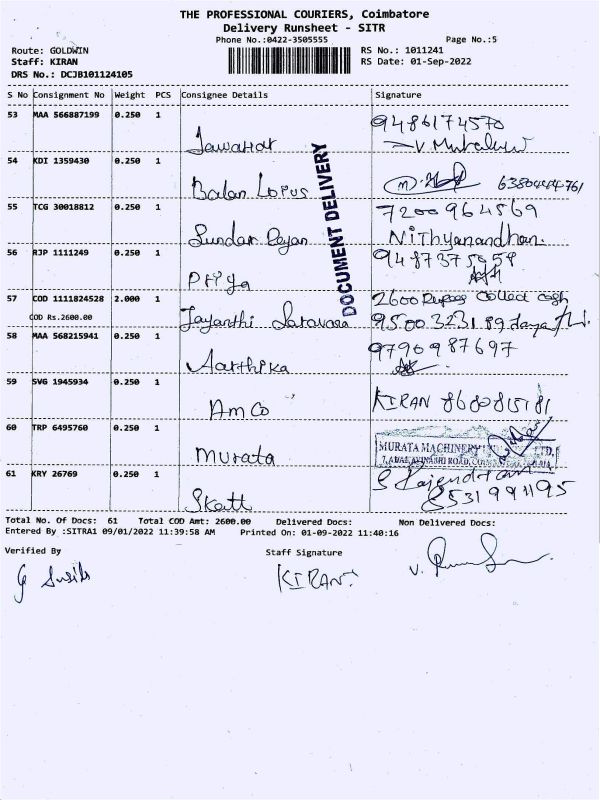 THE PROFESSIONAL COURIERS, Coimbatore
Delivery Runsheet - SITR
Phone No.:0422-3505555 Page No.:5
Route: GOLDWIN RS No.: 1011241
Staff: KIRAN RS Date: 01-Sep-2022
DRS No.: DCJB101124105
S No Consignment No Weight PCS Consignee Details Signature
53 MAA 566887199 0.250 1 9486174570
Jawahar
54 KDI 1359430 0.250 1
Balan Lopus
55 TCG 30018812 0.250 1 7200964569
Sundar Rajan Nithyanandhan.
56 RJP 1111249 0.250 1
Priya
57 COD 1111824528 2.000 1 2600 Rupees Collect cash
COD Rs.2600.00 Jayanthi
58 MAA 568215941 0.250 1 9790987697
Aarthika
59 SVG 1945934 0.250 1 KIRAN 8680815181
AmCo
60 TRP 6495760 0.250 1
Murata MURATA MACHINERY LTD,
61 KRY 26769 0.250 1 S Rajendran
Skatt 8531991195
DOCUMENT DELIVERY
Total No. Of Docs: 61 Total COD Amt: 2600.00 Delivered Docs: Non Delivered Docs:
Entered By :SITRA1 09/01/2022 11:39:58 AM Printed On: 01-09-2022 11:40:16
Verified By Staff Signature
KIRAN